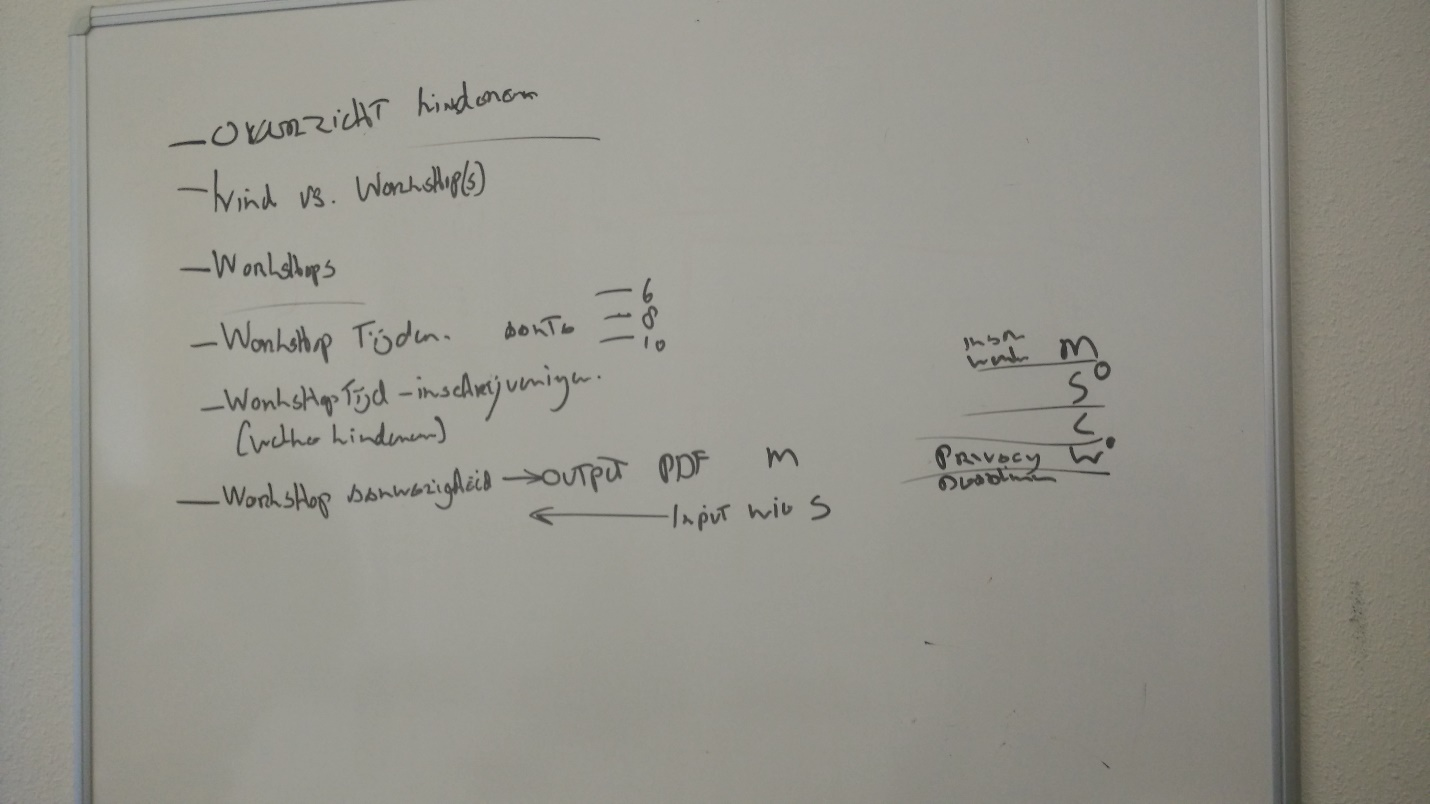 - Overzicht kinderen
- Kind vs. Workshop(s)
- Workshops
- Workshop Tijden.
- 6
- 8
- 10
- WorkshopTijd - inschrijvingen.
(welke kinderen)
- Workshop aanwezigheid → OUTPUT PDF M
← Input S
M
S
C
Privacy W